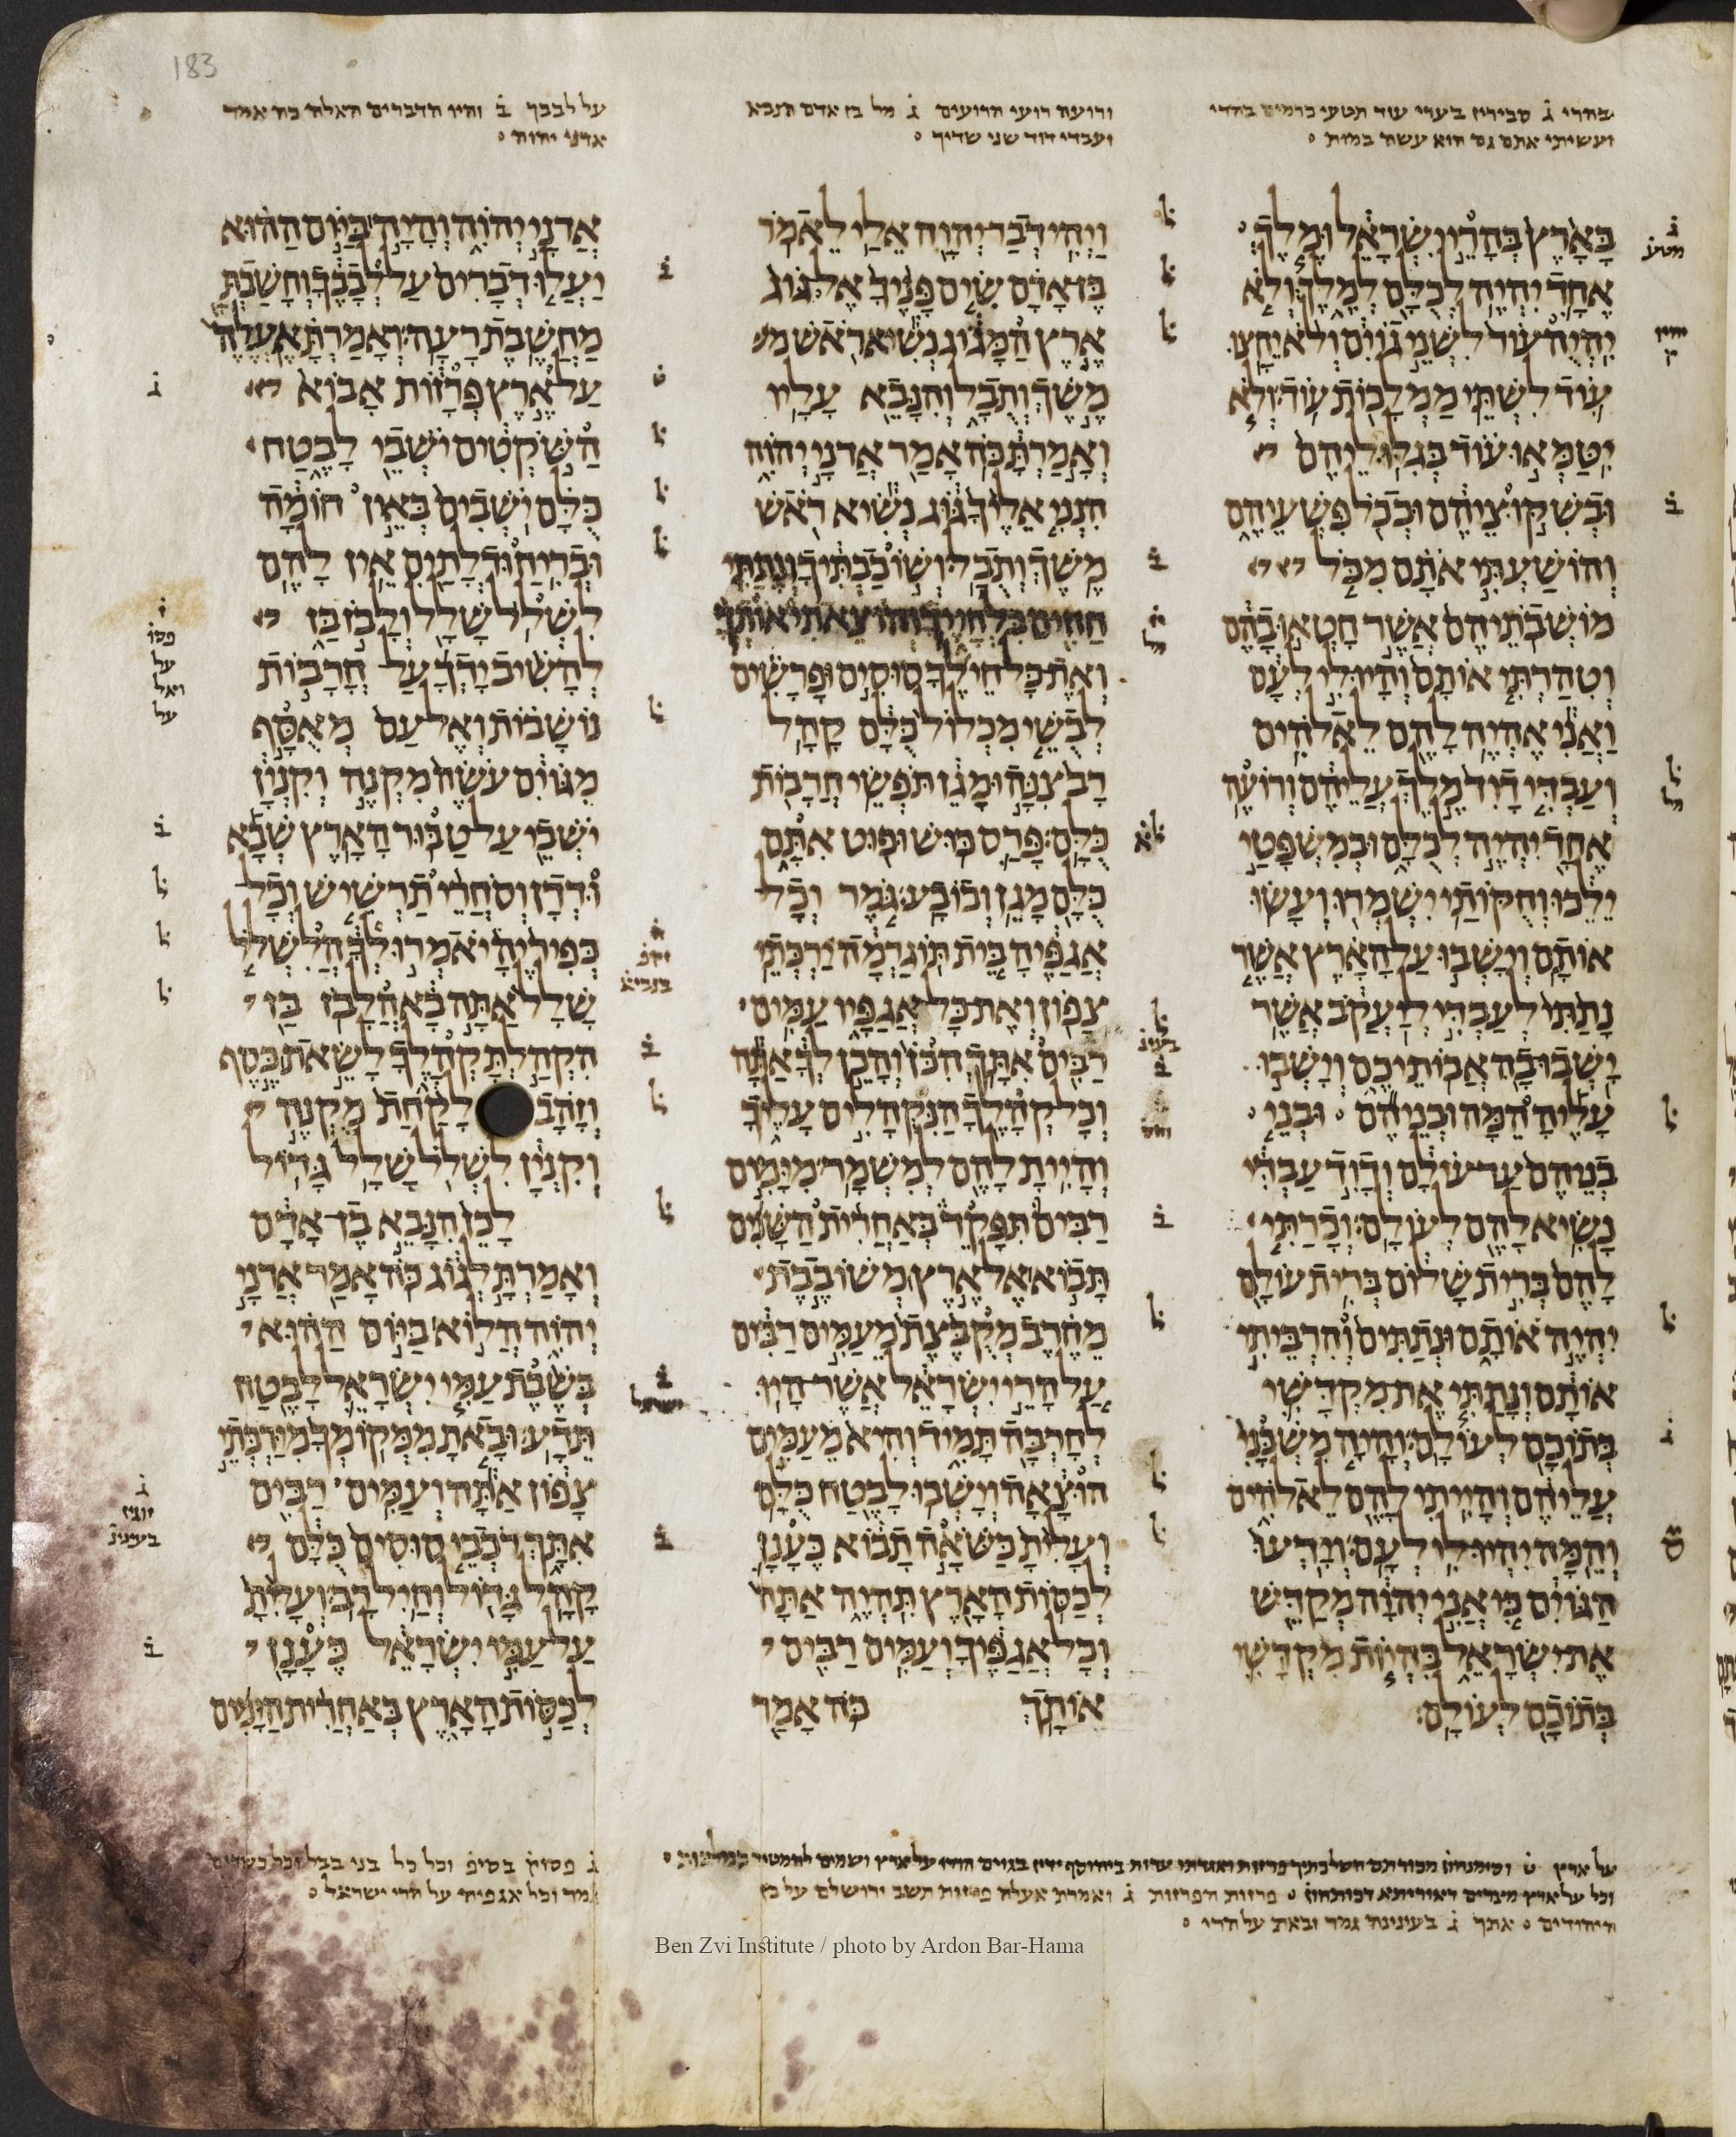 183
בהרי ג סבירין בערי עוד תטעי כרמים בהרי
ועשיתי אתם גם הוא עשה במות
ורועה רועי הרועים ג מל בן אדם הנבא
ועבדי דוד שני שדיך
על לבבך ב והיו הדברים האלה כה אמר
אדני יהוה
בארץ בהרי ישראל ומלך
אחד יהיה לכלם למלך ולא
יהיה עוד לשני גוים ולא יחצו
עוד לשתי ממלכות עוד ולא
יטמאו עוד בגלוליהם
ובשקוציהם ובכל פשעיהם
והושעתי אתם מכל
מושבתיהם אשר חטאו בהם
וטהרתי אותם והיו לי לעם
ואני אהיה להם לאלהים
ועבדי דוד מלך עליהם ורועה
אחד יהיה לכלם ובמשפטי
ילכו וחקותי ישמרו ועשו
אותם וישבו על הארץ אשר
נתתי לעבדי ליעקב אשר
ישבו בה אבותיכם וישבו
עליה המה ובניהם ובני
בניהם עד עולם ודוד עבדי
נשיא להם לעולם וכרתי
להם ברית שלום ברית עולם
יהיה אותם ונתתים והרביתי
אותם ונתתי את מקדשי
בתוכם לעולם והיה משכני
עליהם והייתי להם לאלהים
והמה יהיו לי לעם וידעו
הגוים כי אני יהוה מקדש
את ישראל בהיות מקדשי
בתוכם לעולם
ויהי דבר יהוה אלי לאמר
בן אדם שים פניך אל גוג
ארץ המגוג נשיא ראש
משך ותבל והנבא עליו
ואמרת כה אמר אדני יהוה
הנני אליך גוג נשיא ראש
משך ותבל ושובבתיך ונתתי
חחים בלחייך והוצאתי אותך
ואת כל חילך סוסים ופרשים
לבשי מכלול כלם קהל
רב צנה ומגן תפשי חרבות
כלם פרס כוש ופוט אתם
כלם מגן וכובע גמר וכל
אגפיה בית תוגרמה ירכתי
צפון ואת כל אגפיו עמים
רבים אתך הכן והכן לך אתה
וכל קהלך הנקהלים עליך
והיית להם למשמר מימים
רבים תפקד באחרית השנים
תבוא אל ארץ משובבת
מחרב מקבצת מעמים רבים
על הרי ישראל אשר היו
לחרבה תמיד והיא מעמים
הוצאה וישבו לבטח כלם
ועלית כשאה תבוא כענן
לכסות הארץ תהיה אתה
וכל אגפיך ועמים רבים
אותך כה אמר
אדני יהוה והיה ביום ההוא
יעלו דברים על לבבך וחשבת
מחשבת רעה ואמרת אעלה
על ארץ פרזות אבוא
השקטים ישבי לבטח
כלם ישבים באין חומה
ובריח ודלתים אין להם
לשלל שלל ולבז בז
להשיב ידך על חרבות
נושבות ואל עם מאסף
מגוים עשה מקנה וקנין
ישבי על טבור הארץ שבא
ודדן וסחרי תרשיש וכל
כפיריה יאמרו לך הלשלל
שלל אתה בא הלבז בז
הקהלת קהלך לשאת כסף
וזהב לקחת מקנה
וקנין לשלל שלל גדול
לכן הנבא בן אדם
ואמרת לגוג כה אמר אדני
יהוה הלוא ביום ההוא
בשבת עמי ישראל לבטח
תדע ובאת ממקומך מירכתי
צפון אתה ועמים רבים
אתך רכבי סוסים כלם
קהל גדול וחיל רב ועלית
על עמי ישראל כענן
לכסות הארץ באחרית הימים
וכל על ארץ מצרים דאוריתא דכותהון פרזות הפרזות ג ואמרת אעלה פרזות תשב ירושלם על כן
היהודים אתך ג בעינינה גמר ובאת על הרי
ג פסוק בסיפ וכל כל בני בבל וכל כשדים
גמר וכל אגפיה על הרי ישראל
Ben Zvi Institute / photo by Ardon Bar-Hama